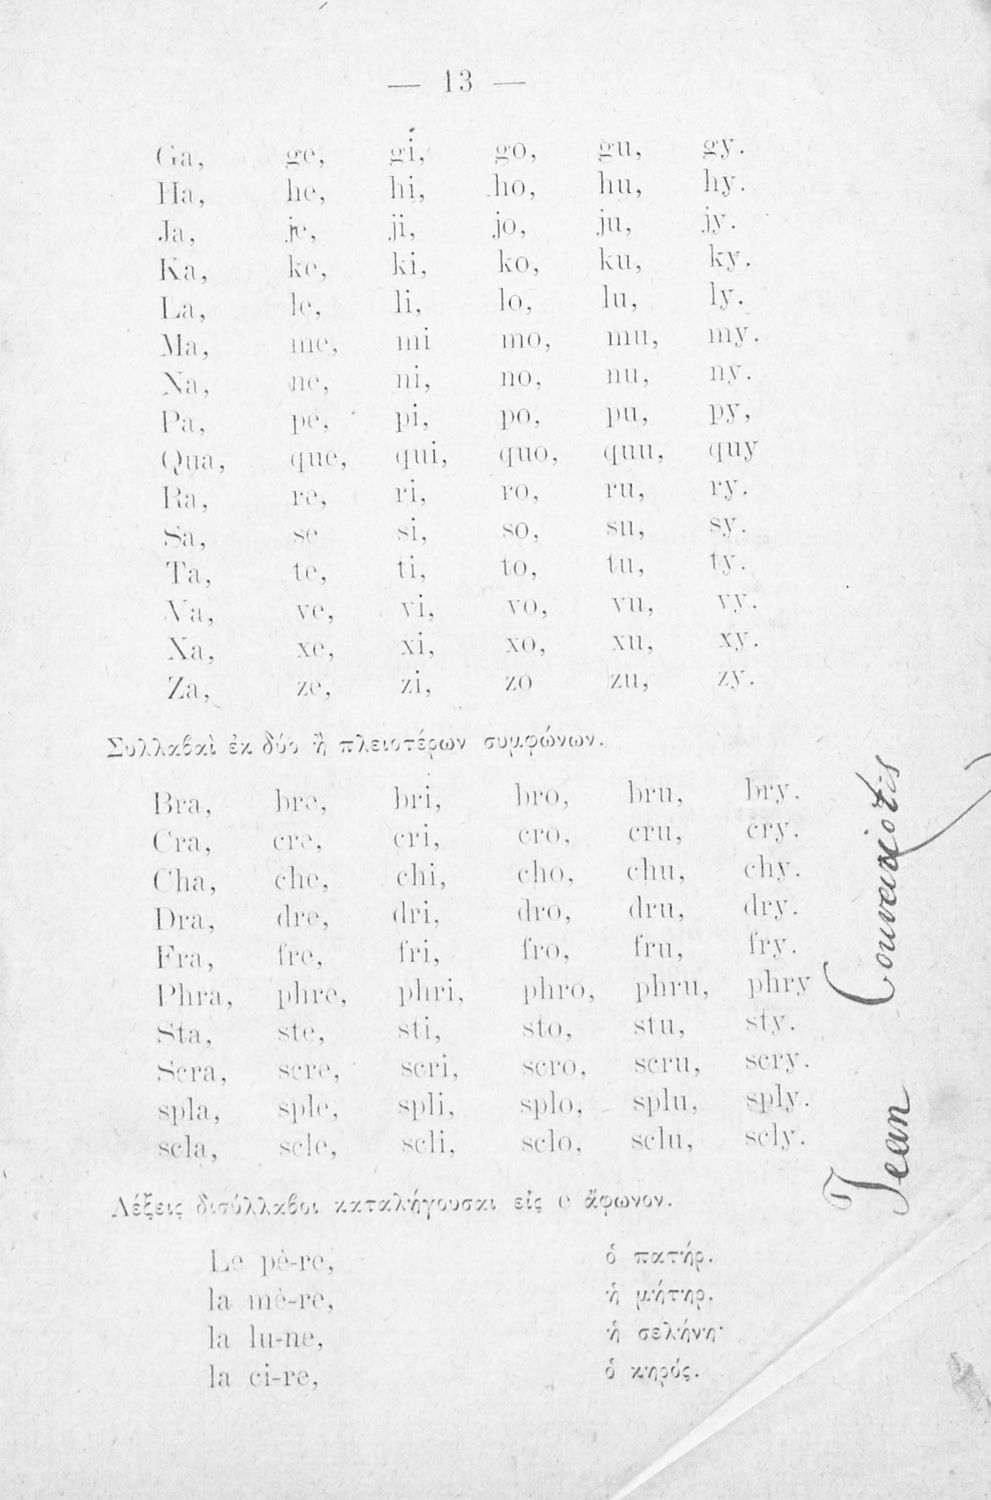 — 13 —
Ga, ge, gi, go, gu, gy.
Ha, he, hi, ho, hu, hy.
Ja, je, ji, jo, ju, jy.
Ka, ke, ki, ko, ku, ky.
La, le, li, lo, lu, ly.
Ma, me, mi mo, mu, my.
Na, ne, ni, no, nu, ny.
Pa, pe, pi, po, pu, py,
Qua, que, qui, quo, quu, quy
Ra, re, ri, ro, ru, ry.
Sa, se si, so, su, sy.
Ta, te, ti, to, tu, ty.
Va, ve, vi, vo, vu, vy.
Xa, xe, xi, xo, xu, xy.
Za, ze, zi, zo zu, zy.
Συλλαβαὶ ἐκ δύο ἢ πλειοτέρων συμφώνων.
Bra, bre, bri, bro, bru, bry.
Cra, cre, cri, cro, cru, cry.
Cha, che, chi, cho, chu, chy.
Dra, dre, dri, dro, dru, dry.
Fra, fre, fri, fro, fru, fry.
Phra, phre, phri, phro, phru, phry
Sta, ste, sti, sto, stu, sty.
Scra, scre, scri, scro, scru, scry.
spla, sple, spli, splo, splu, sply.
scla, scle, scli, sclo, sclu, scly.
Λέξεις δισύλλαβοι καταλήγουσαι εἰς e ἄφωνον.
Le pè-re, ὁ πατήρ.
la mè-re, ἡ μήτηρ.
la lu-ne, ἡ σελήνη·
la ci-re, ὁ κηρός.
Jean